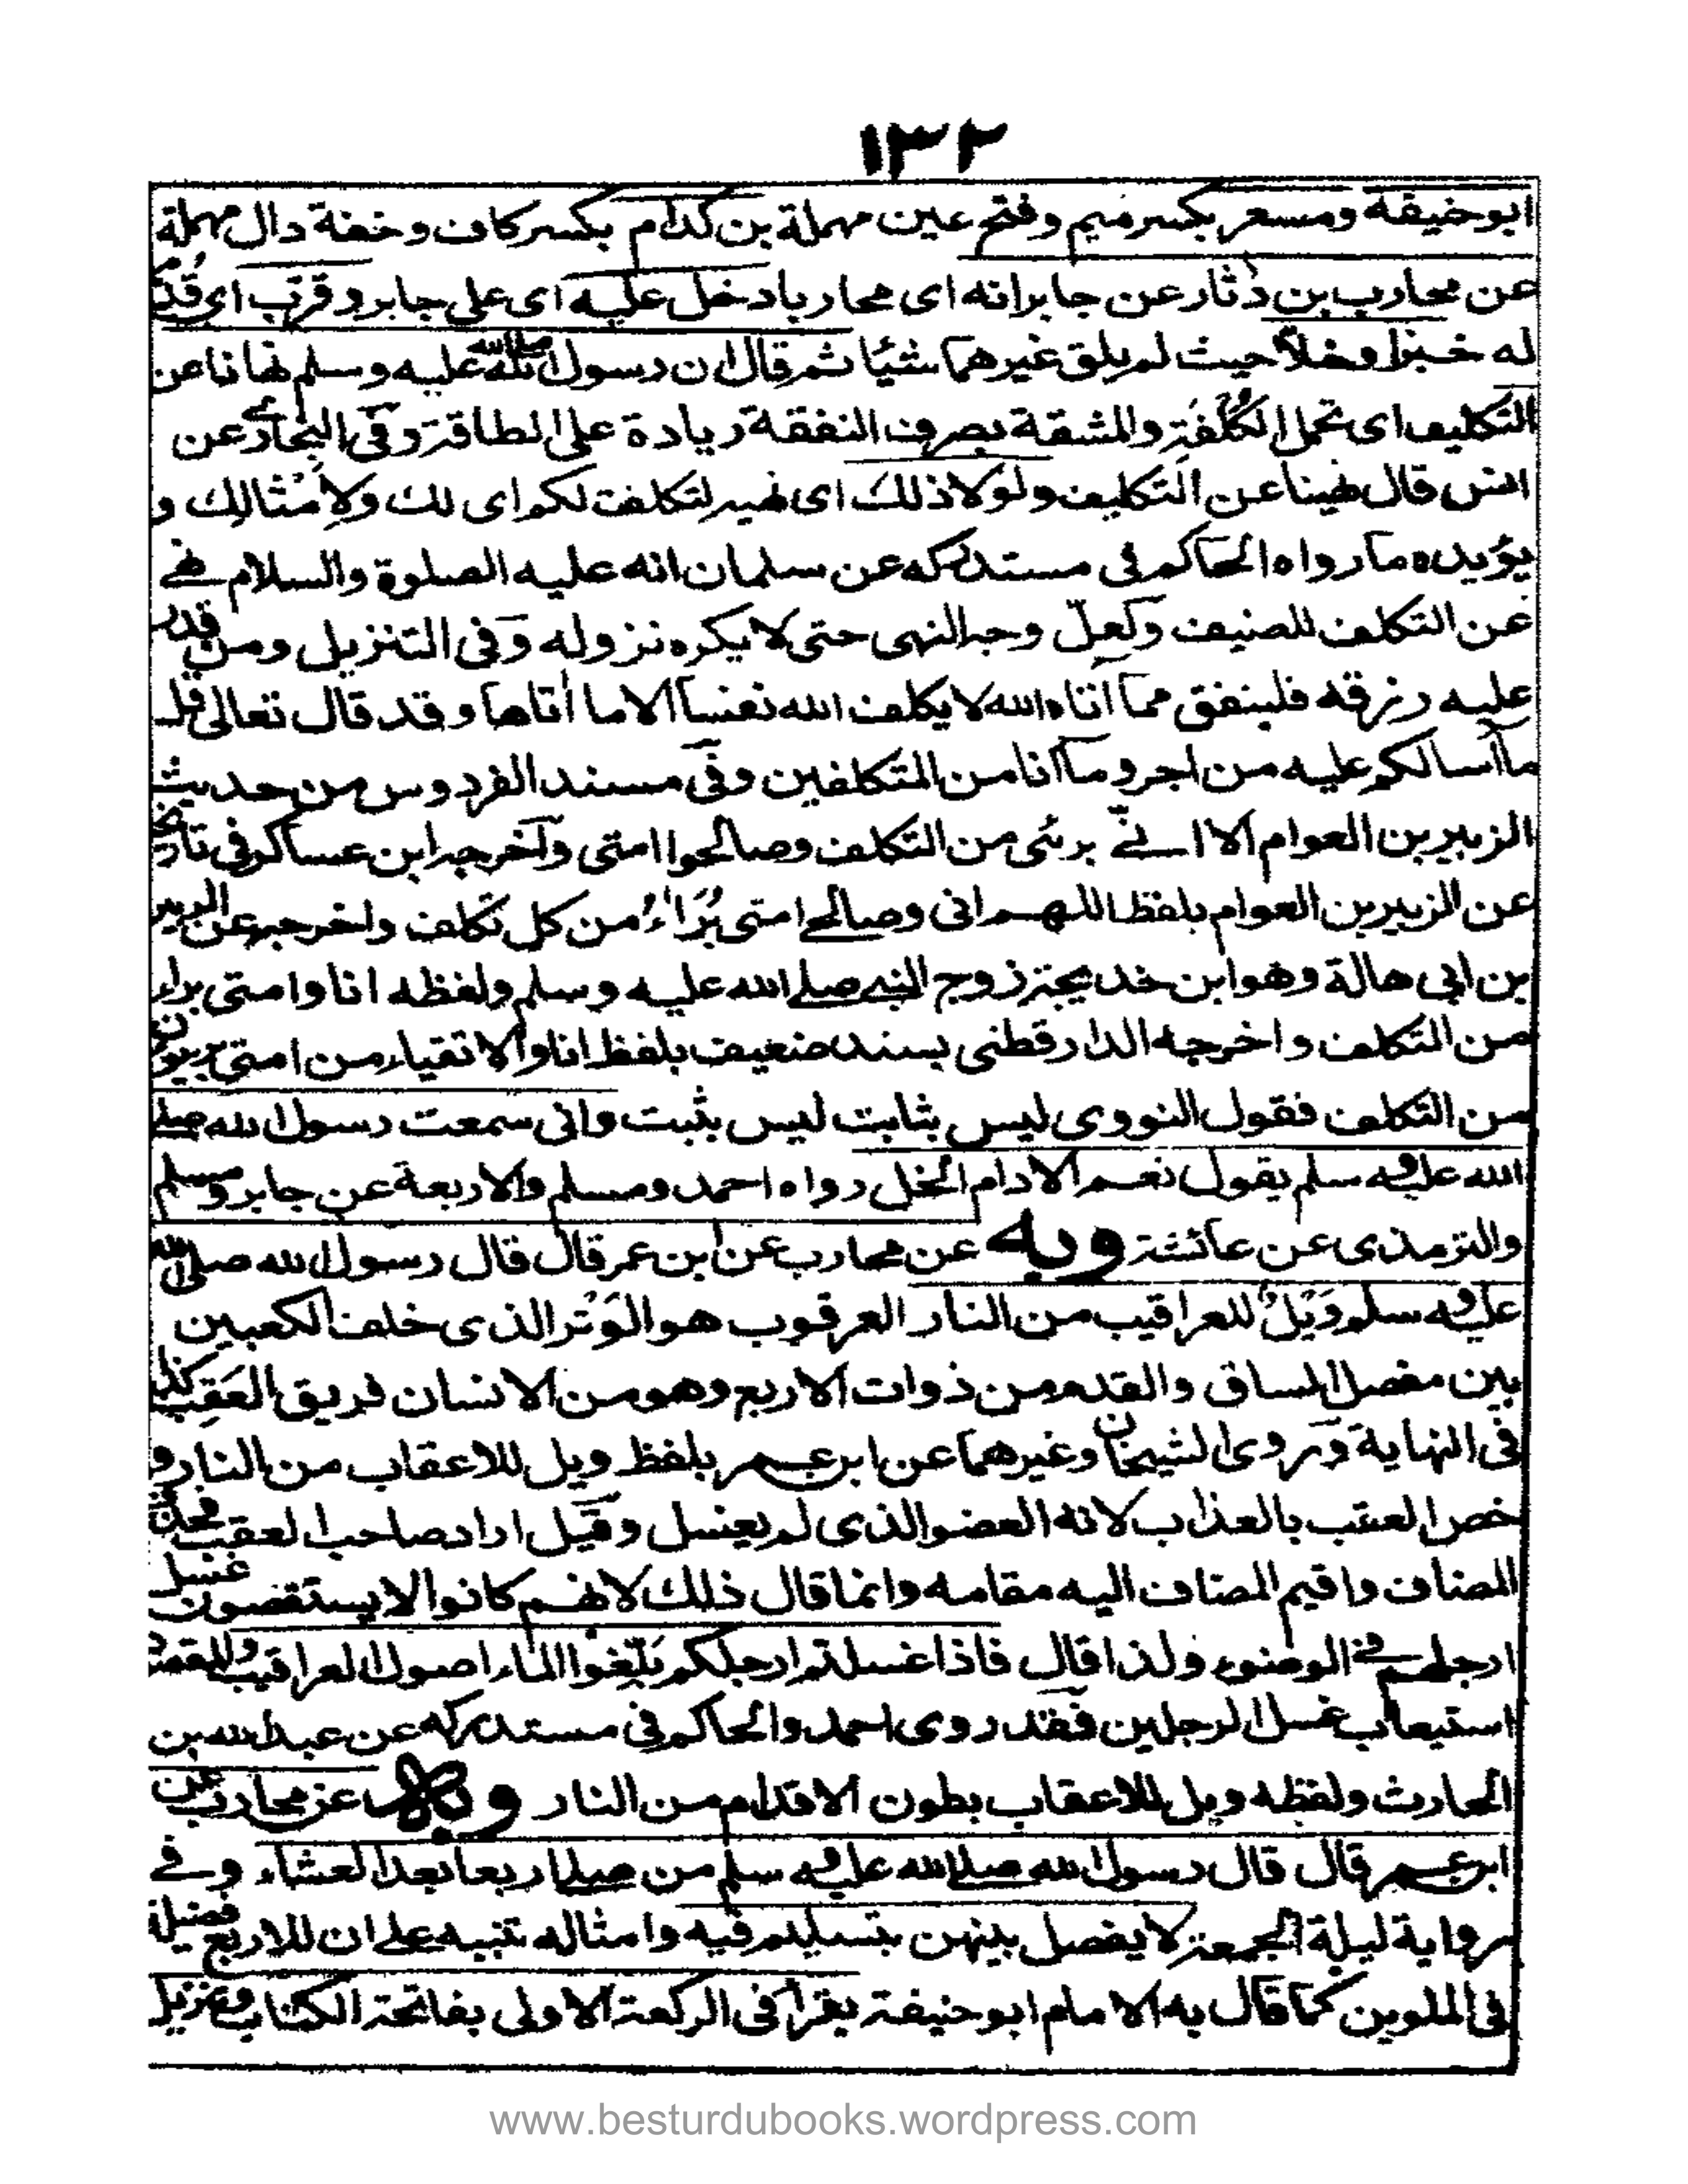 ١٣٢
ابوحنيفة ومسعر بكسر ميم وفتح عين مهملة بن كدام بكسر كاف وخفة دال مهملة
عن محارب بن دثار عن جابر انه اى محاربا دخل عليه اى على جابر وقرب اى قدم
له خبزا وخلا حيث لم يلق غيرهما شيئا ثم قال ان رسول الله صلى الله عليه وسلم نهانا عن
التكليف اى تحمل الكلفة والمشقة بصرف النفقة زيادة على الطاقة وفى البخارى عن
انس قال نهينا عن التكليف ولولا ذلك اى نهيه لتكلفت لكم اى لك ولامثالك و
يؤيده ما رواه الحاكم فى مستدركه عن سلمان انه عليه الصلوة والسلام نهى
عن التكلف للضيف ولعل وجه النهى حتى لا يكره نزوله وفى التنزيل ومن قدر
عليه رزقه فلينفق مما آتاه الله لا يكلف الله نفسا الا ما آتاها وقد قال تعالى قل
ما أسالكم عليه من اجر وما أنا من المتكلفين وفى مسند الفردوس من حديث
الزبير بن العوام الا انى برئى من التكلف وصالحوا امتى وآخرجه ابن عساكر فى تاريخ
عن الزبير بن العوام بلفظ اللهم انى وصالحى امتى برآء من كل تكلف واخرجه عن الزبير
بن ابى هالة وهو ابن خديجة زوج النبى صلى الله عليه وسلم ولفظه انا وامتى براء
من التكلف واخرجه الدارقطنى بسند ضعيف بلفظ انا والاتقياء من امتى بريون
من التكلف فقول النووى ليس بثابت ليس بثبت وانى سمعت رسول الله صلى
الله عليه وسلم يقول نعم الادام الخل رواه احمد ومسلم والاربعة عن جابر ومسلم
والترمذى عن عائشة وبه عن محارب عن ابن عمر قال قال رسول الله صلى الله
عليه وسلم ويل للعراقيب من النار العرقوب هو الوتر الذى خلف الكعبين
بين مفصل الساق والقدم من ذوات الاربع وهو من الانسان فريق العقب كذا
فى النهاية وروى الشيخان وغيرهما عن ابن عمر بلفظ ويل للاعقاب من النار و
خص العقب بالعذاب لانه العضو الذى لم يغسل وقيل اراد صاحب العقب فحذف
المضاف واقيم المضاف اليه مقامه وانما قال ذلك لانهم كانوا لا يستقصون غسل
ارجلهم فى الوضوء ولذا قال فاذا غسلتم ارجلكم بلغوا الماء اصول العراقيب والمقصد
استيعاب غسل الرجلين فقد روى احمد والحاكم فى مستدركه عن عبد الله بن
الحارث ولفظه ويل للاعقاب بطون الاقدام من النار وبه عن محارب عن
ابن عمر قال قال رسول الله صلى الله عليه وسلم من صلى اربعا بعد العشاء وفى
رواية ليلة الجمعة لا يفصل بينهن بتسليم فيه وامثاله تنبيه على ان للاربع فضيلة
فى الملوين كما قال به الامام ابوحنيفة يقرأ فى الركعة الاولى بفاتحة الكتاب وتنزيل
www.besturdubooks.wordpress.com